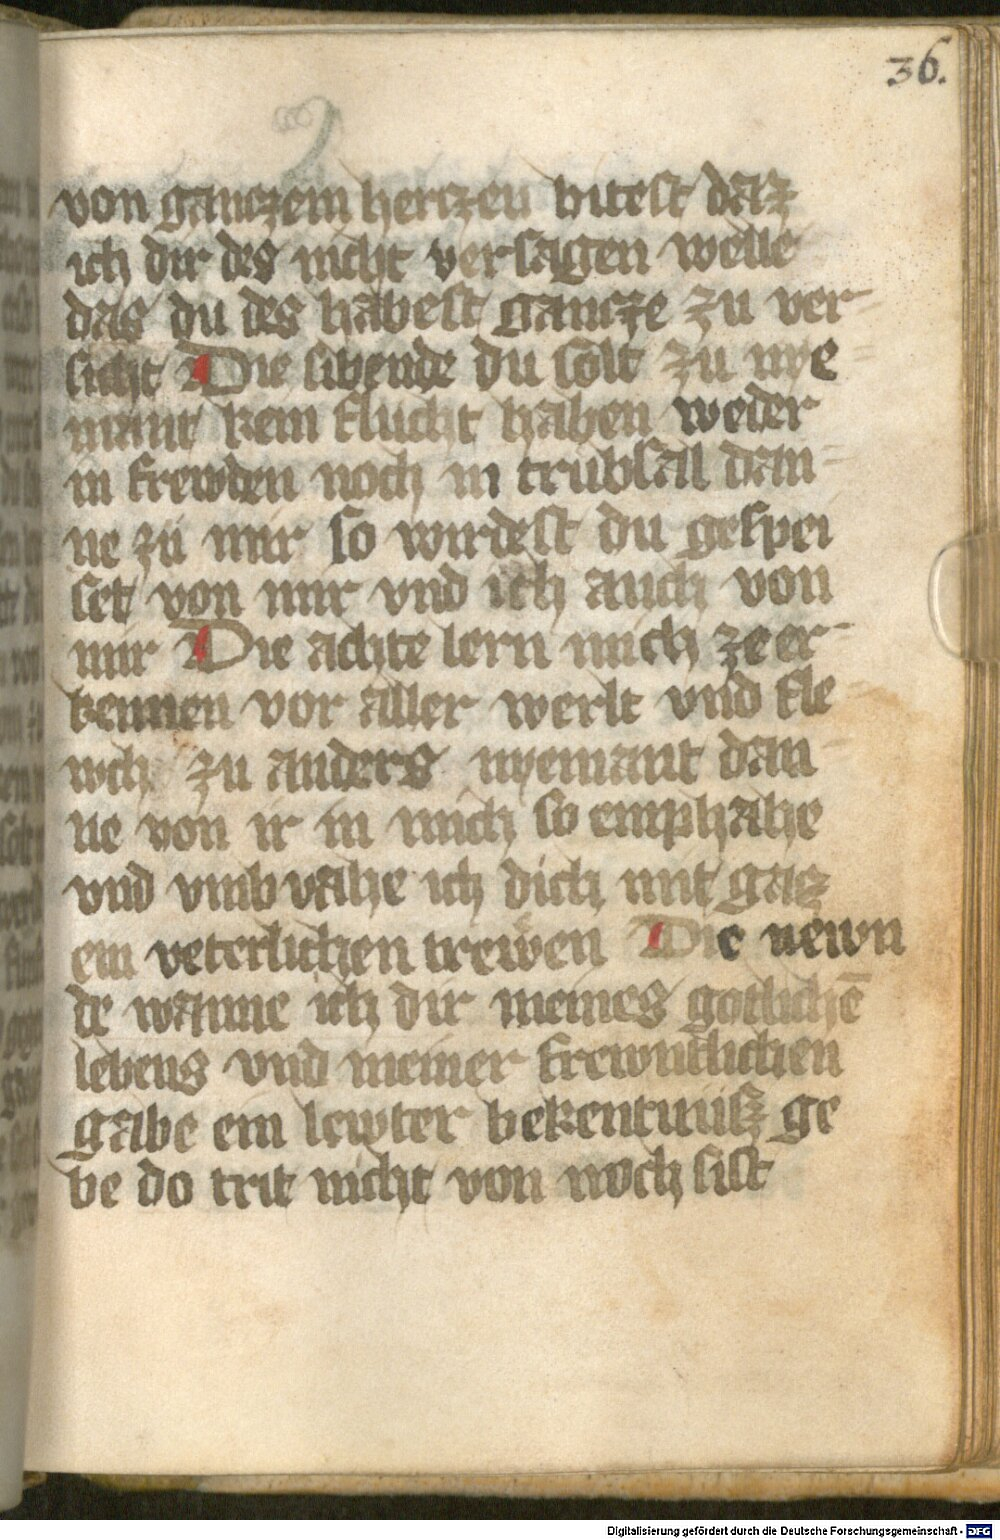 36.
von ganczem herczen bitest daz
ich dir des nicht versagen welle
das du des habest gancze zu ver-
sicht Die sibende du solt zu nye
mant kein flucht haben weder
in frewden noch in trubsall dan-
ne zu mir so wirdest du gespei
set von mir vnd ich auch von
mir Die achte lern mich ze er-
kennen vor aller werlt vnd fle-
wch zu anders nyemant dan-
ne von ir in mich so emphahe
vnd vmb vahe ich dich mit gacz
em veterlichen trewen Die newn
de wanne ich dir meines gotlichē
lebens vnd meiner frewntlichen
gabe ein lewter bekentnüsz ge
be do trit nicht von noch sist
Digitalisierung gefördert durch die Deutsche Forschungsgemeinschaft - DFG